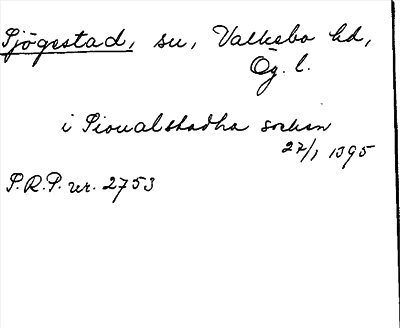 Sjögestad, su, Valkebo hd,
Ög. l.
i Sioualstadha sochen
27/1 1395
S.R.P. nr. 2753